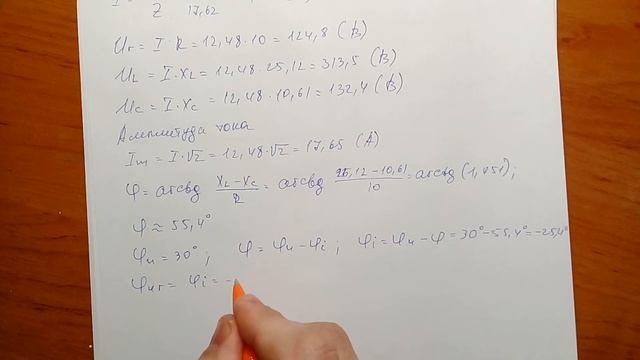 Z 17,62
Ur = I · R = 12,48 · 10 = 124,8 (В)
UL = I · XL = 12,48 · 25,12 = 313,5 (В)
Uc = I · Xc = 12,48 · 10,61 = 132,4 (В)
Амплитуда тока
Im = I · √2 = 12,48 · √2 = 17,65 (А)
φ = arctg (XL − Xc)/R = arctg (25,12 − 10,61)/10 = arctg (1,451);
φ ≈ 55,4°
φu = 30° ; φ = φu − φi ; φi = φu − φ = 30° − 55,4° = −25,4°
φur = φi = −